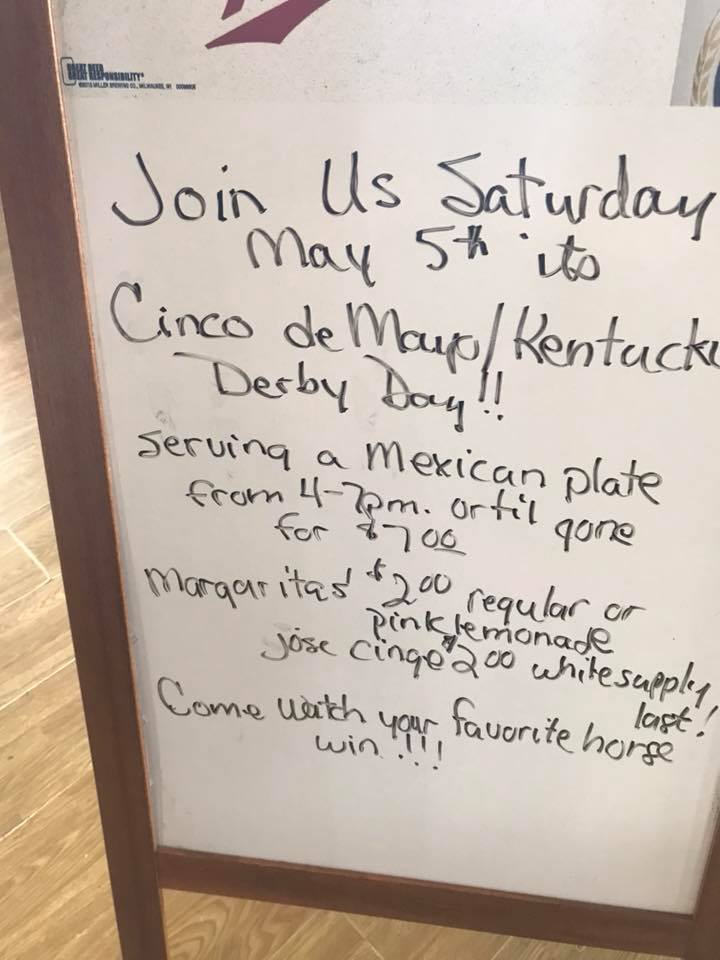 GREAT BEER
GREAT RESPONSIBILITY®
MILLER BREWING CO., MILWAUKEE, WI
Join Us Saturday
May 5th ito
Cinco de Mayo/Kentucky
Derby Day!!
serving a Mexican plate
from 4-7pm. or til gone
for $7.00
Margaritas $2.00 regular or
pink lemonade
Jose cinqo $2.00 white supply
last!
Come Watch your favorite horse
win!!!